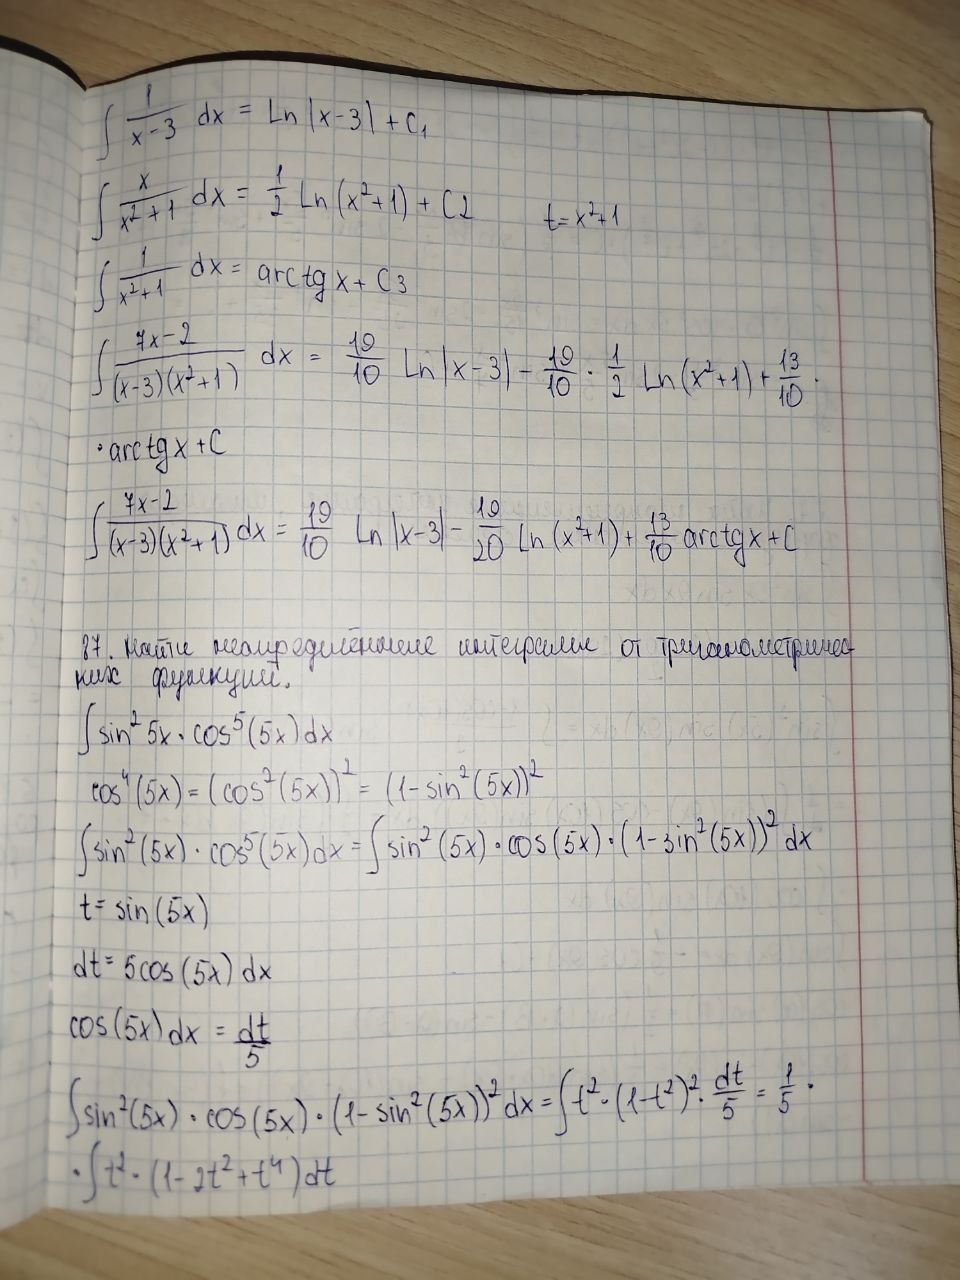 ∫ 1/(x-3) dx = Ln|x-3| + C₁
∫ x/(x²+1) dx = 1/2 Ln(x²+1) + C2   t = x²+1
∫ 1/(x²+1) dx = arctgx + C3
∫ (7x-2)/((x-3)(x²+1)) dx = 19/10 Ln|x-3| - 19/10 · 1/2 Ln(x²+1) + 13/10 ·
· arctgx + C
∫ (7x-2)/((x-3)(x²+1)) dx = 19/10 Ln|x-3| - 19/20 Ln(x²+1) + 13/10 arctgx + C
87. Найти неопределённые интегралы от тригонометричес
ких функций.
∫ sin² 5x · cos⁵(5x)dx
cos⁴(5x) = (cos²(5x))² = (1-sin²(5x))²
∫ sin²(5x) · cos⁵(5x)dx = ∫ sin²(5x) · cos(5x) · (1-sin²(5x))² dx
t = sin(5x)
dt = 5cos(5x) dx
cos(5x)dx = dt/5
∫ sin²(5x) · cos(5x) · (1-sin²(5x))² dx = ∫ t² · (1-t²)² · dt/5 = 1/5 ·
· ∫ t² · (1-2t²+t⁴)dt